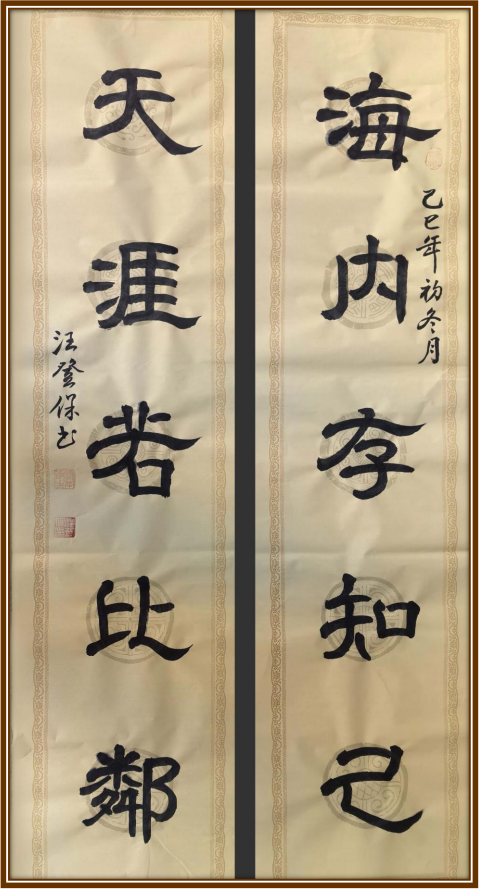 海内存知己
己巳年初冬月
天涯若比鄰
汪登保书